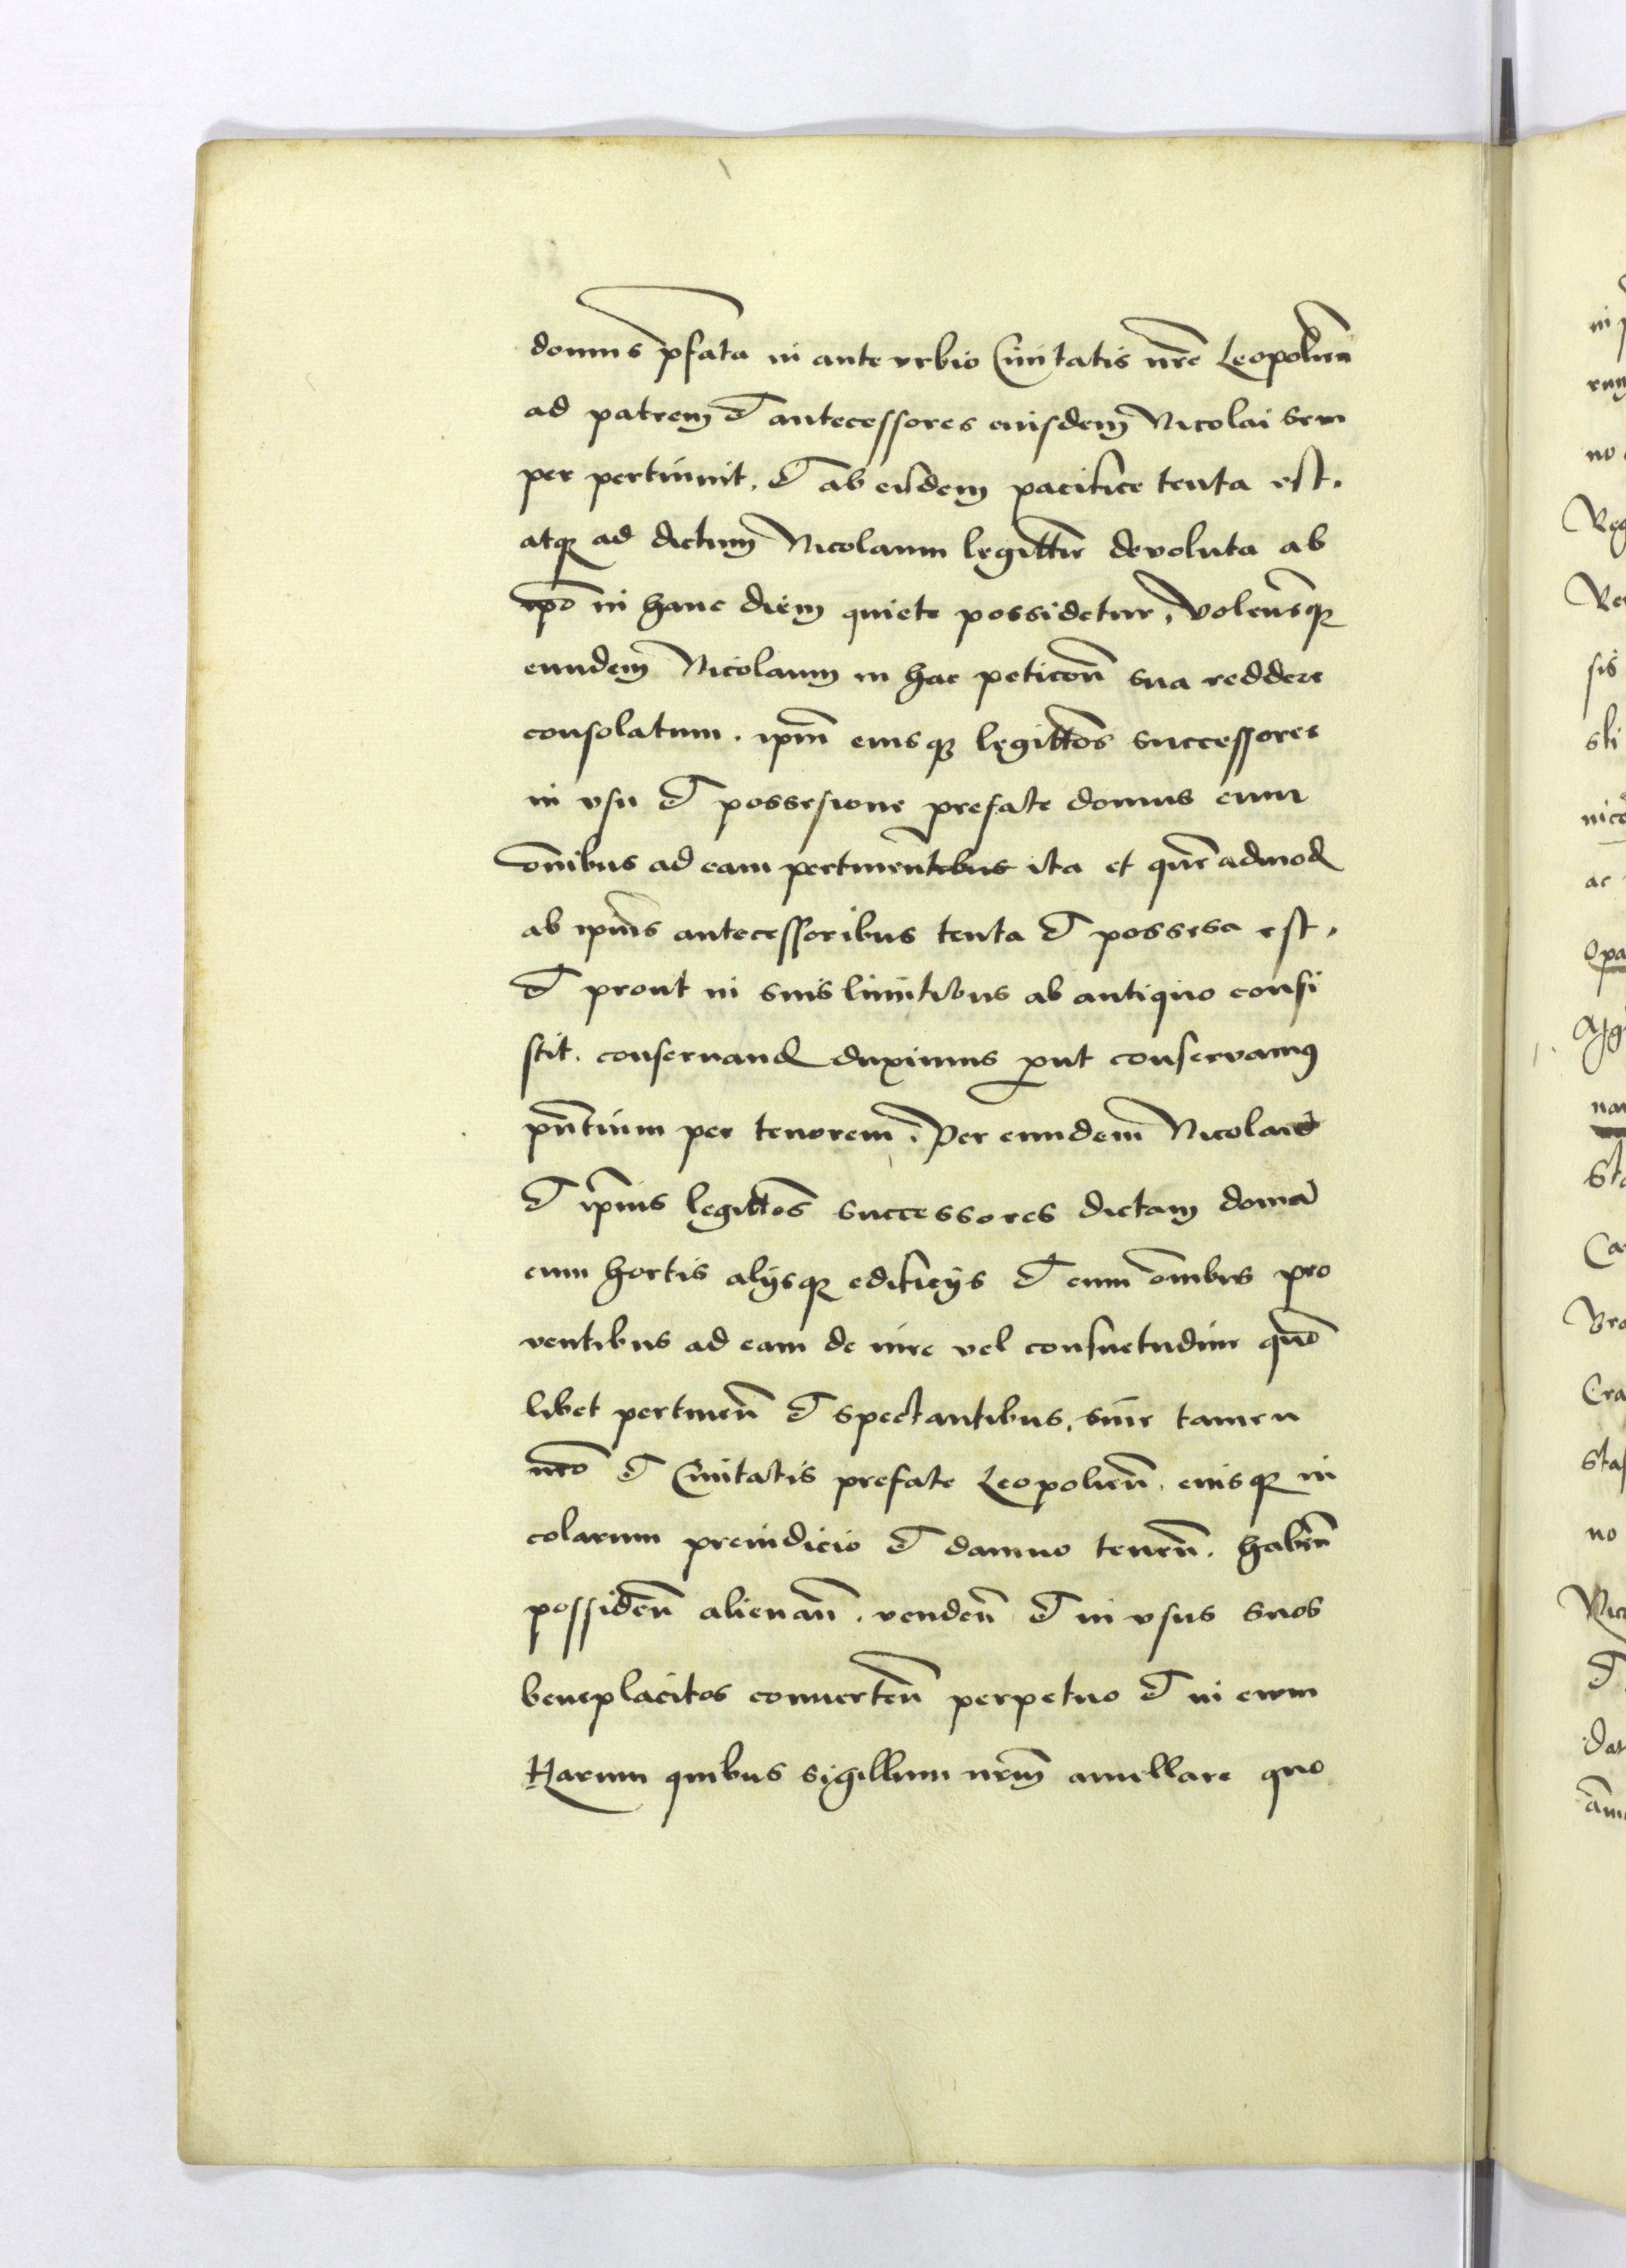 domus p̄fata in ante vrbio Ciuitatis nr̄e Leopolien̄
ad patrem et antecessores eiusdem Nicolai sem
per pertinuit, et ab eisdem pacifice tenta est.
atq ad dictum Nicolaum legittīe devoluta ab
ip̄o in hanc diem quiete possidetur, Volensq
eundem Nicolaum in hac peticon̄e sua reddere
consolatum. ip̄m eiusq legittōs successores
in vsu et possesione prefate domus cum
om̄ibus ad eam pertinentibus ita et quēadmod
ab ip̄ius antecessoribus tenta et possesa est.
et prout in suis limitibus ab antiquo consi
stit. conseruand duximus ꝓut conservamus
pn̄tium per tenorem. Per eundem Nicolaū
et ip̄ius legittōs successores dictam domū
cum hortis alysq edificijs et cum om̄ibus pro
ventibus ad eam de iure vel consuetudine quō
libet pertinen̄ et spectantibus, sine tamen
nr̄o et Ciuitatis prefate Leopolien̄. eiusq in
colarum preiudicio et damno tenen̄. haben̄
possiden̄ alienan̄. venden̄ et in vsus suos
beneplacitos conuerten̄ perpetuo et in eum
Harum quibus sigillum nr̄m anullare quo